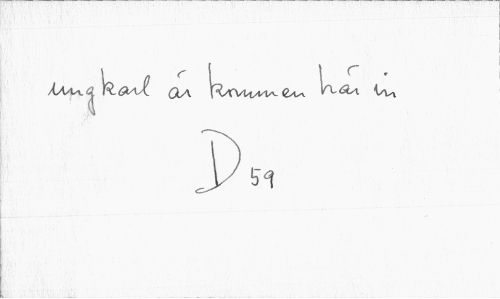 ungkarl är kommen här in
D 59